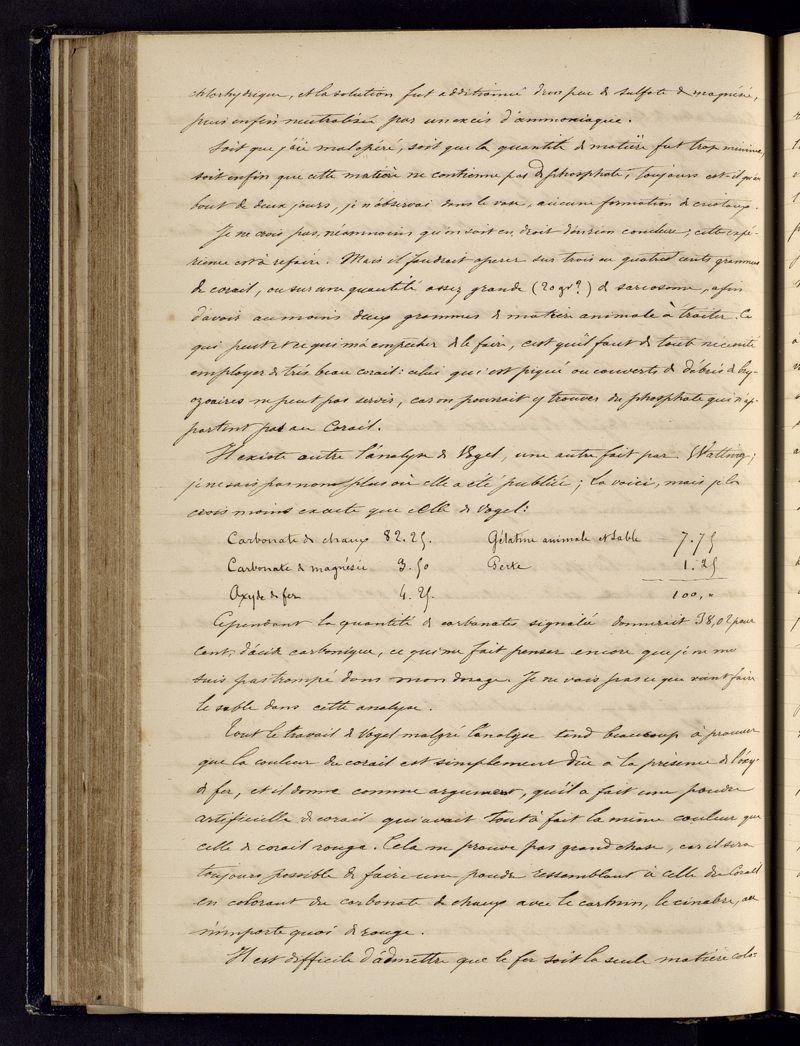 chlorhydrique, et la solution fut additionné d'un peu de sulfate de magnésie,
puis enfin neutralisée par un excès d'ammoniaque.
Soit que j'aie mal opéré, soit que la quantité de matière fut trop minime,
soit enfin que cette matière ne contienne pas de phosphate, toujours est-il qu'au
bout de deux jours, je n'observai dans le vase, aucune formation de cristaux.
Je ne crois pas, néanmoins qu'on soit en droit d'en rien conclure; cette expé-
rience est à refaire. Mais il faudrait operer sur trois ou quatres cents grammes
de corail, ou sur une quantité assez grande (20 gr?) de sarcosome, afin
d'avoir au moins deux grammes de matière animale à traiter. Ce
qui peut et ce qui m'a empecher de le faire, c'est qu'il faut de toute necessité
employer de très beau corail: celui qui est piqué ou couverts de débris de bry-
ozoaires ne peut pas servir, car on pourrait y trouver du phosphate qui n'ap-
partint pas au Corail.
Il existe outre l'analyse de Vogel, une autre fait par Watting;
je ne sais pas non plus où elle a été publiée; La voici, mais je la
crois moins exacte que celle de Vogel:
Carbonate de chaux 82.25. Gélatine animale et sable 7.75
Carbonate de magnésie 3.50 Perte 1.25
Oxyde de fer 4.25. 100,"
Cependant la quantité de carbonates signalée donnerait 38,02 pour
cent, d'acide carbonique, ce qui me fait penser encore que je ne me
suis pas trompé dans mon dosage. Je ne vois pas ce que vient faire
le sable dans cette analyse.
Tout le travail de Vogel malgré l'analyse tend beaucoup à prouver
que la couleur du corail est simplement dûe à la présence de l'oxy-
de fer, et il donne comme argument, qu'il a fait une poudre
artificielle de corail qui avait tout à fait la même couleur que
celle de corail rouge. Cela ne prouve pas grand chose, car il sera
toujours possible de faire une poudre ressemblant à celle du Corail
en colorant du carbonate de chaux avec le carmin, le cinabre, ou
n'importe quoi de rouge.
Il est difficile d'admettre que le fer soit la seule matière colo-